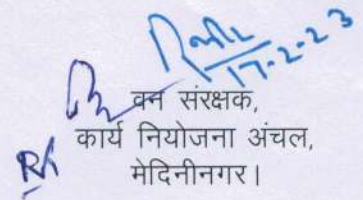 17-2-23
वन संरक्षक,
कार्य नियोजना अंचल,
मेदिनीनगर।